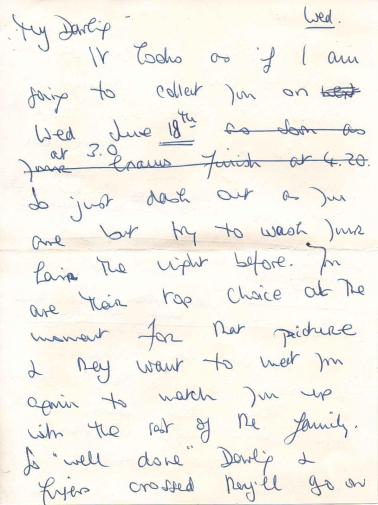 Wed.
My Darling -
It looks as if I am
going to collect you on next
Wed June 18th as soon as
at 3.0
your exams finish at 4.20.
So just dash out as you
are but try to wash your
hair the night before. You
are their top choice at the
moment for that picture
& they want to meet you
again to match you up
with the rest of the family.
So "well done" Darling &
fingers crossed they'll go on